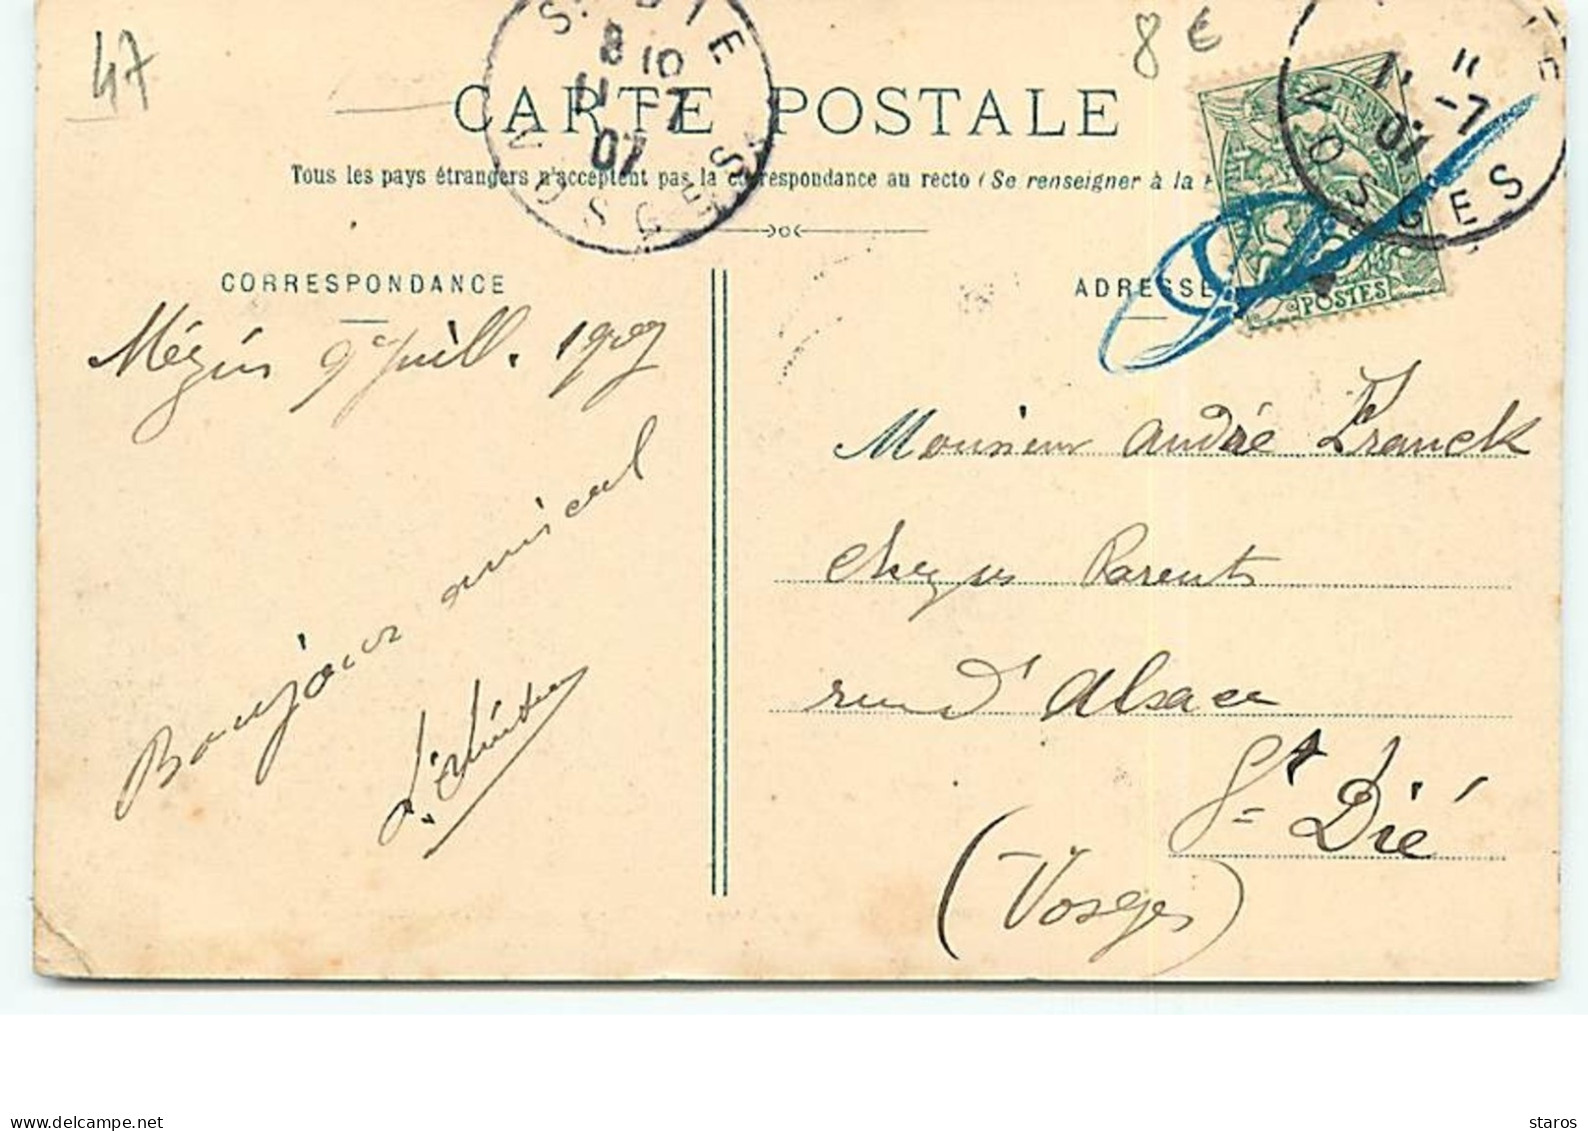 47
8 €
St DIE
8 10
11 -7
07
VOSGES
11
-7
07
VOSGES
CARTE POSTALE
Tous les pays étrangers n'acceptent pas la correspondance au recto (Se renseigner à la
CORRESPONDANCE
ADRESSE
POSTES
Mézin 9e Juill. 1907
Bonjour amical
Monsieur André Franck
chez ses Parents
rue d'Alsace
St Dié
(Vosges)
staros